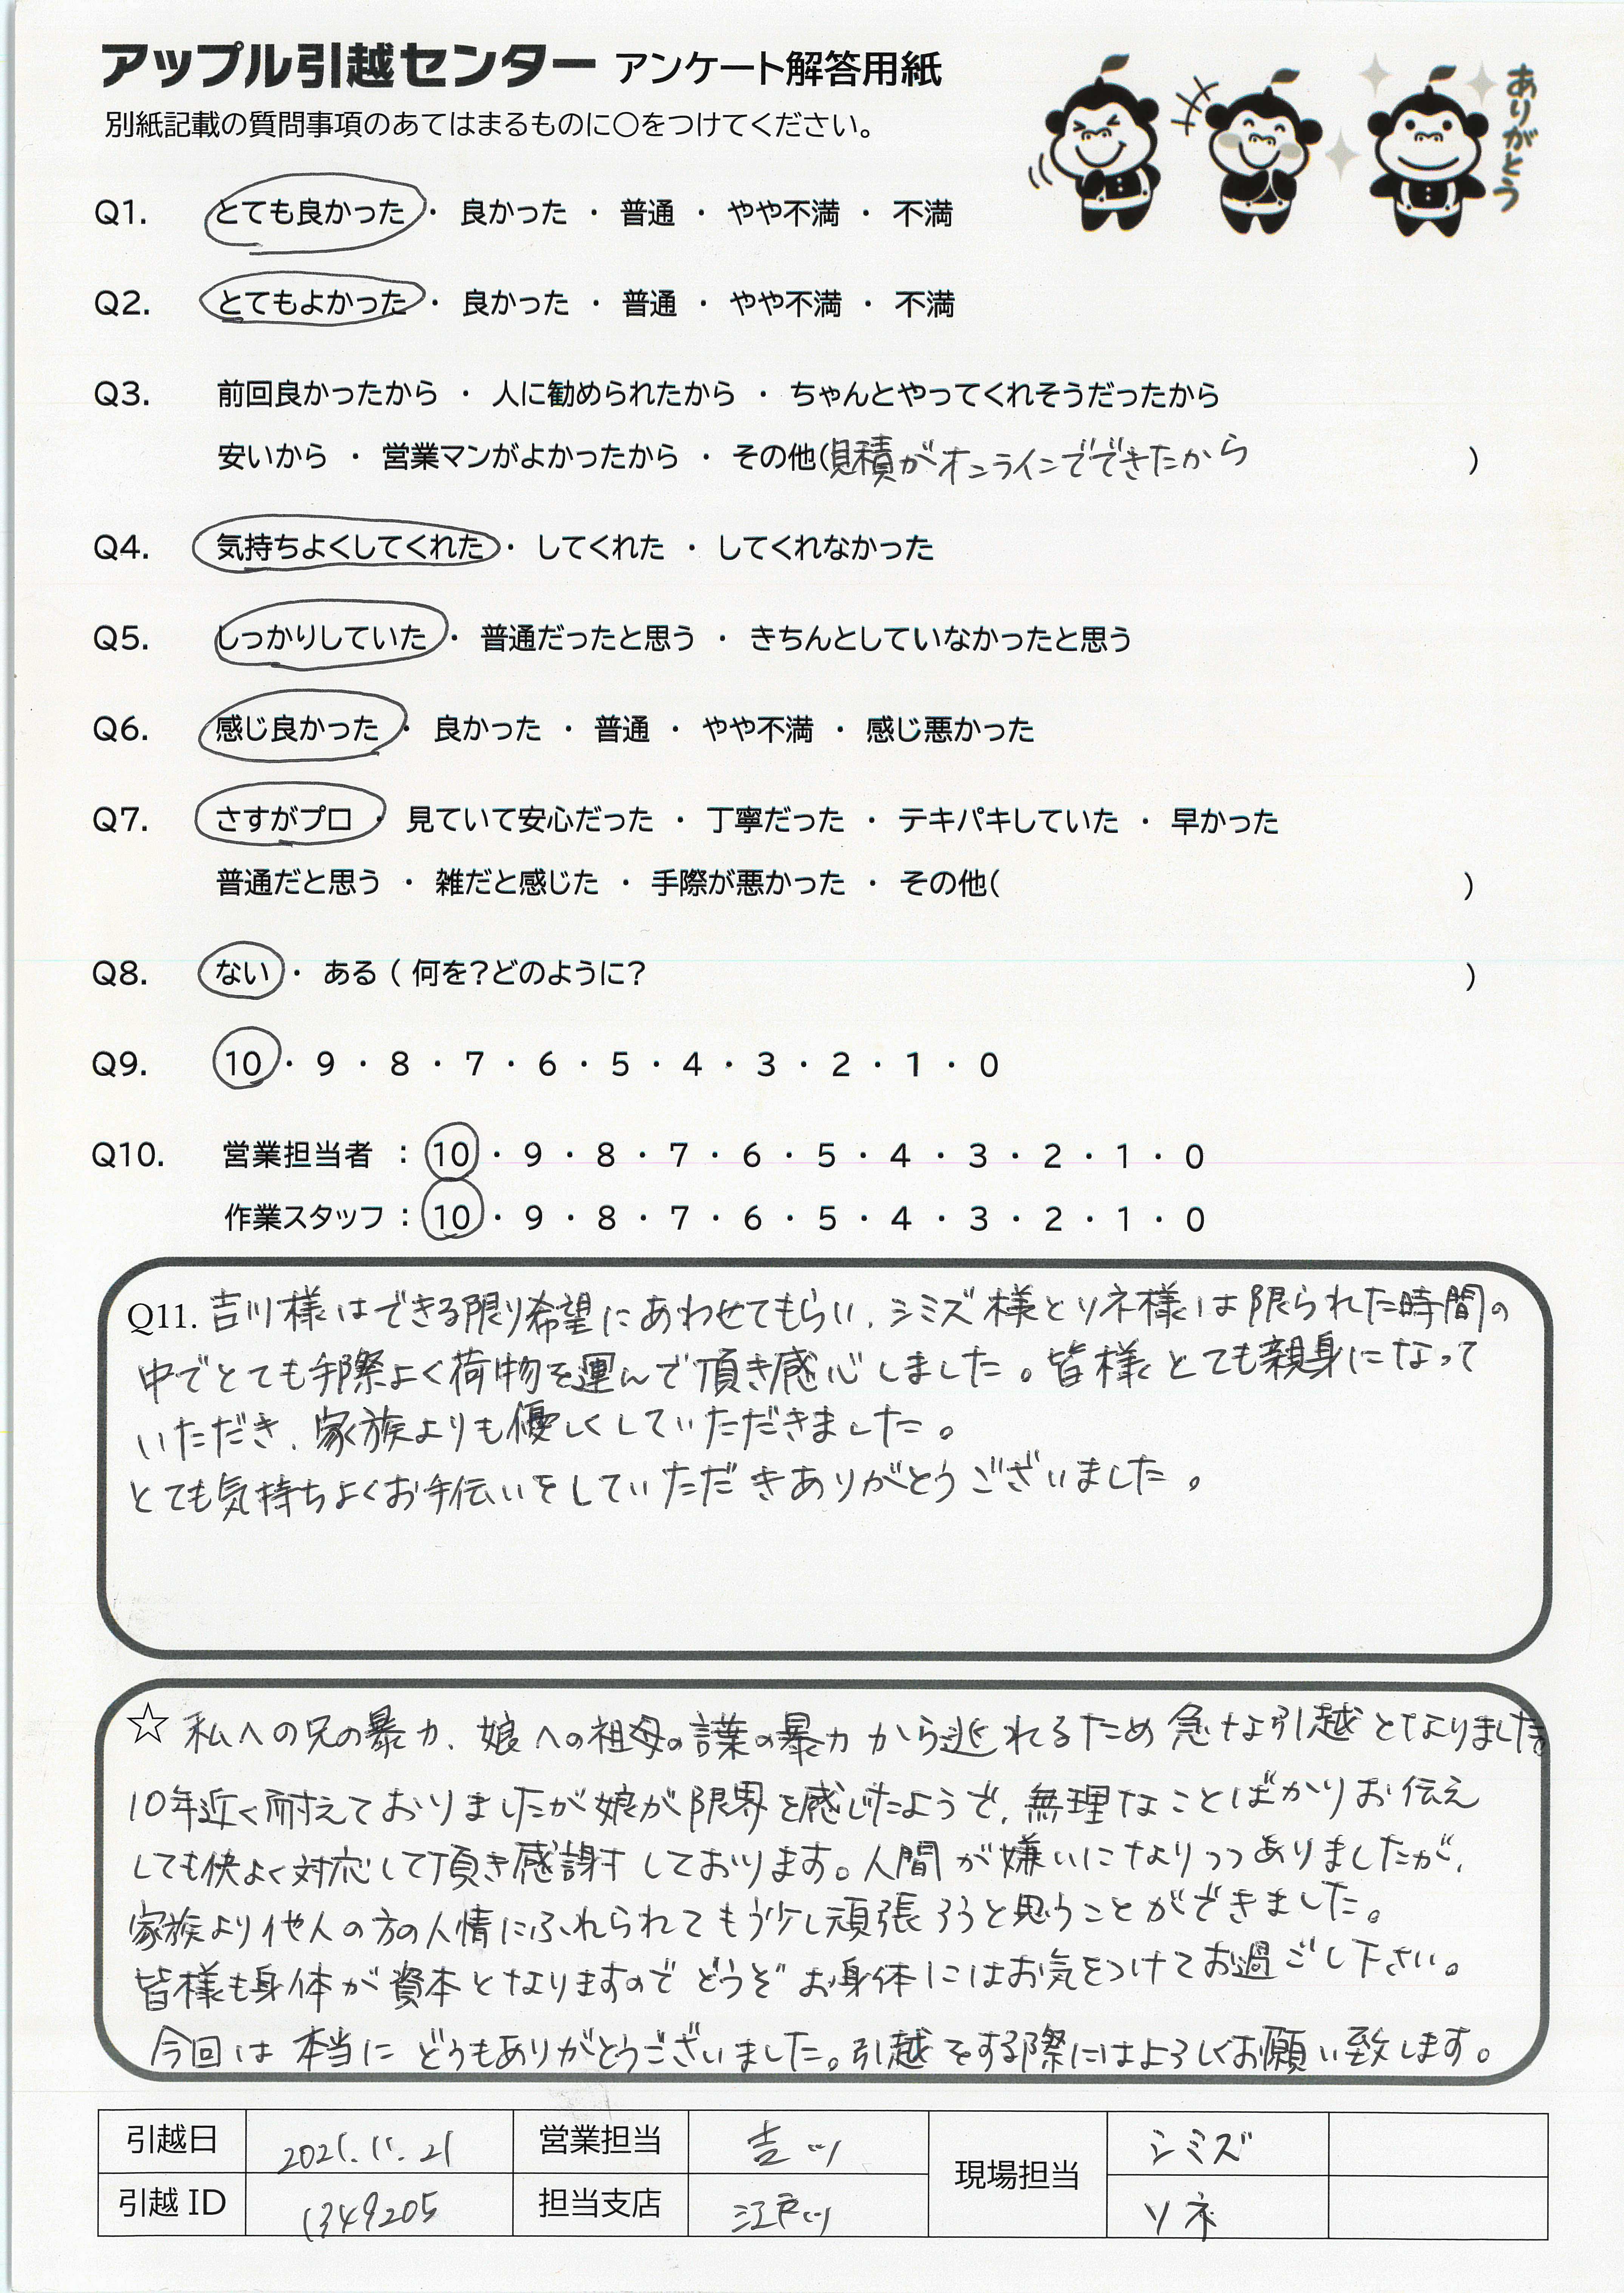 アップル引越センター アンケート解答用紙
ありがとう
別紙記載の質問事項のあてはまるものに〇をつけてください。
Q1. とても良かった ・ 良かった ・ 普通 ・ やや不満 ・ 不満
Q2. とてもよかった ・ 良かった ・ 普通 ・ やや不満 ・ 不満
Q3. 前回良かったから ・ 人に勧められたから ・ ちゃんとやってくれそうだったから
安いから ・ 営業マンがよかったから ・ その他(見積がオンラインでできたから )
Q4. 気持ちよくしてくれた ・ してくれた ・ してくれなかった
Q5. しっかりしていた ・ 普通だったと思う ・ きちんとしていなかったと思う
Q6. 感じ良かった ・ 良かった ・ 普通 ・ やや不満 ・ 感じ悪かった
Q7. さすがプロ ・ 見ていて安心だった ・ 丁寧だった ・ テキパキしていた ・ 早かった
普通だと思う ・ 雑だと感じた ・ 手際が悪かった ・ その他( )
Q8. ない ・ ある ( 何を?どのように? )
Q9. 10 ・ 9 ・ 8 ・ 7 ・ 6 ・ 5 ・ 4 ・ 3 ・ 2 ・ 1 ・ 0
Q10. 営業担当者 : 10 ・ 9 ・ 8 ・ 7 ・ 6 ・ 5 ・ 4 ・ 3 ・ 2 ・ 1 ・ 0
作業スタッフ : 10 ・ 9 ・ 8 ・ 7 ・ 6 ・ 5 ・ 4 ・ 3 ・ 2 ・ 1 ・ 0
Q11. 吉川様はできる限り希望にあわせてもらい、シミズ様とソネ様は限られた時間の
中でとても手際よく荷物を運んで頂き感心しました。皆様とても親身になって
いただき、家族よりも優しくしていただきました。
とても気持ちよくお手伝いをしていただきありがとうございました。
☆ 私への兄の暴力、娘への祖母の言葉の暴力から逃れるため急な引越となりました。
10年近く耐えておりましたが娘が限界を感じたようで、無理なことばかりお伝え
しても快よく対応して頂き感謝しております。人間が嫌いになりつつありましたが、
家族より他人の方の人情にふれられてもう少し頑張ろうと思うことができました。
皆様も身体が資本となりますのでどうぞお身体にはお気をつけてお過ごし下さい。
今回は本当にどうもありがとうございました。引越をする際にはよろしくお願い致します。
引越日 2021.11.21 営業担当 吉川 現場担当 シミズ
引越ID 1349205 担当支店 江戸川 ソネ